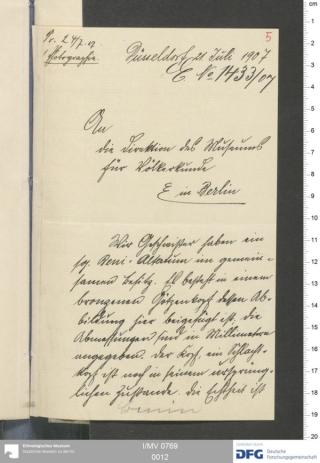 Pr. 24/7. 07
1 Photographie.
5
Düsseldorf, 21 Juli 1907
E. No 1433/07
An
die Direktion des Museums
für Völkerkunde
in Berlin
Wir Geschwister haben ein
sog. Beni-Altertum im gemein-
samen Besitz. Es besteht in einem
bronzenen Götzenkopf dessen Ab-
bildung hier beigefügt ist, die
Abmessungen sind in Millimetern
angegeben. Der Kopf, ein Schlacht-
kopf ist noch in seinem ursprüng-
lichen Zustande. Die Echtheit ist
cm
1
2
3
4
5
6
7
8
9
10
11
12
13
14
15
16
17
18
19
20
Ethnologisches Museum
Staatliche Museen zu Berlin
I/MV 0769
0012
DFG
Deutsche
Forschungsgemeinschaft